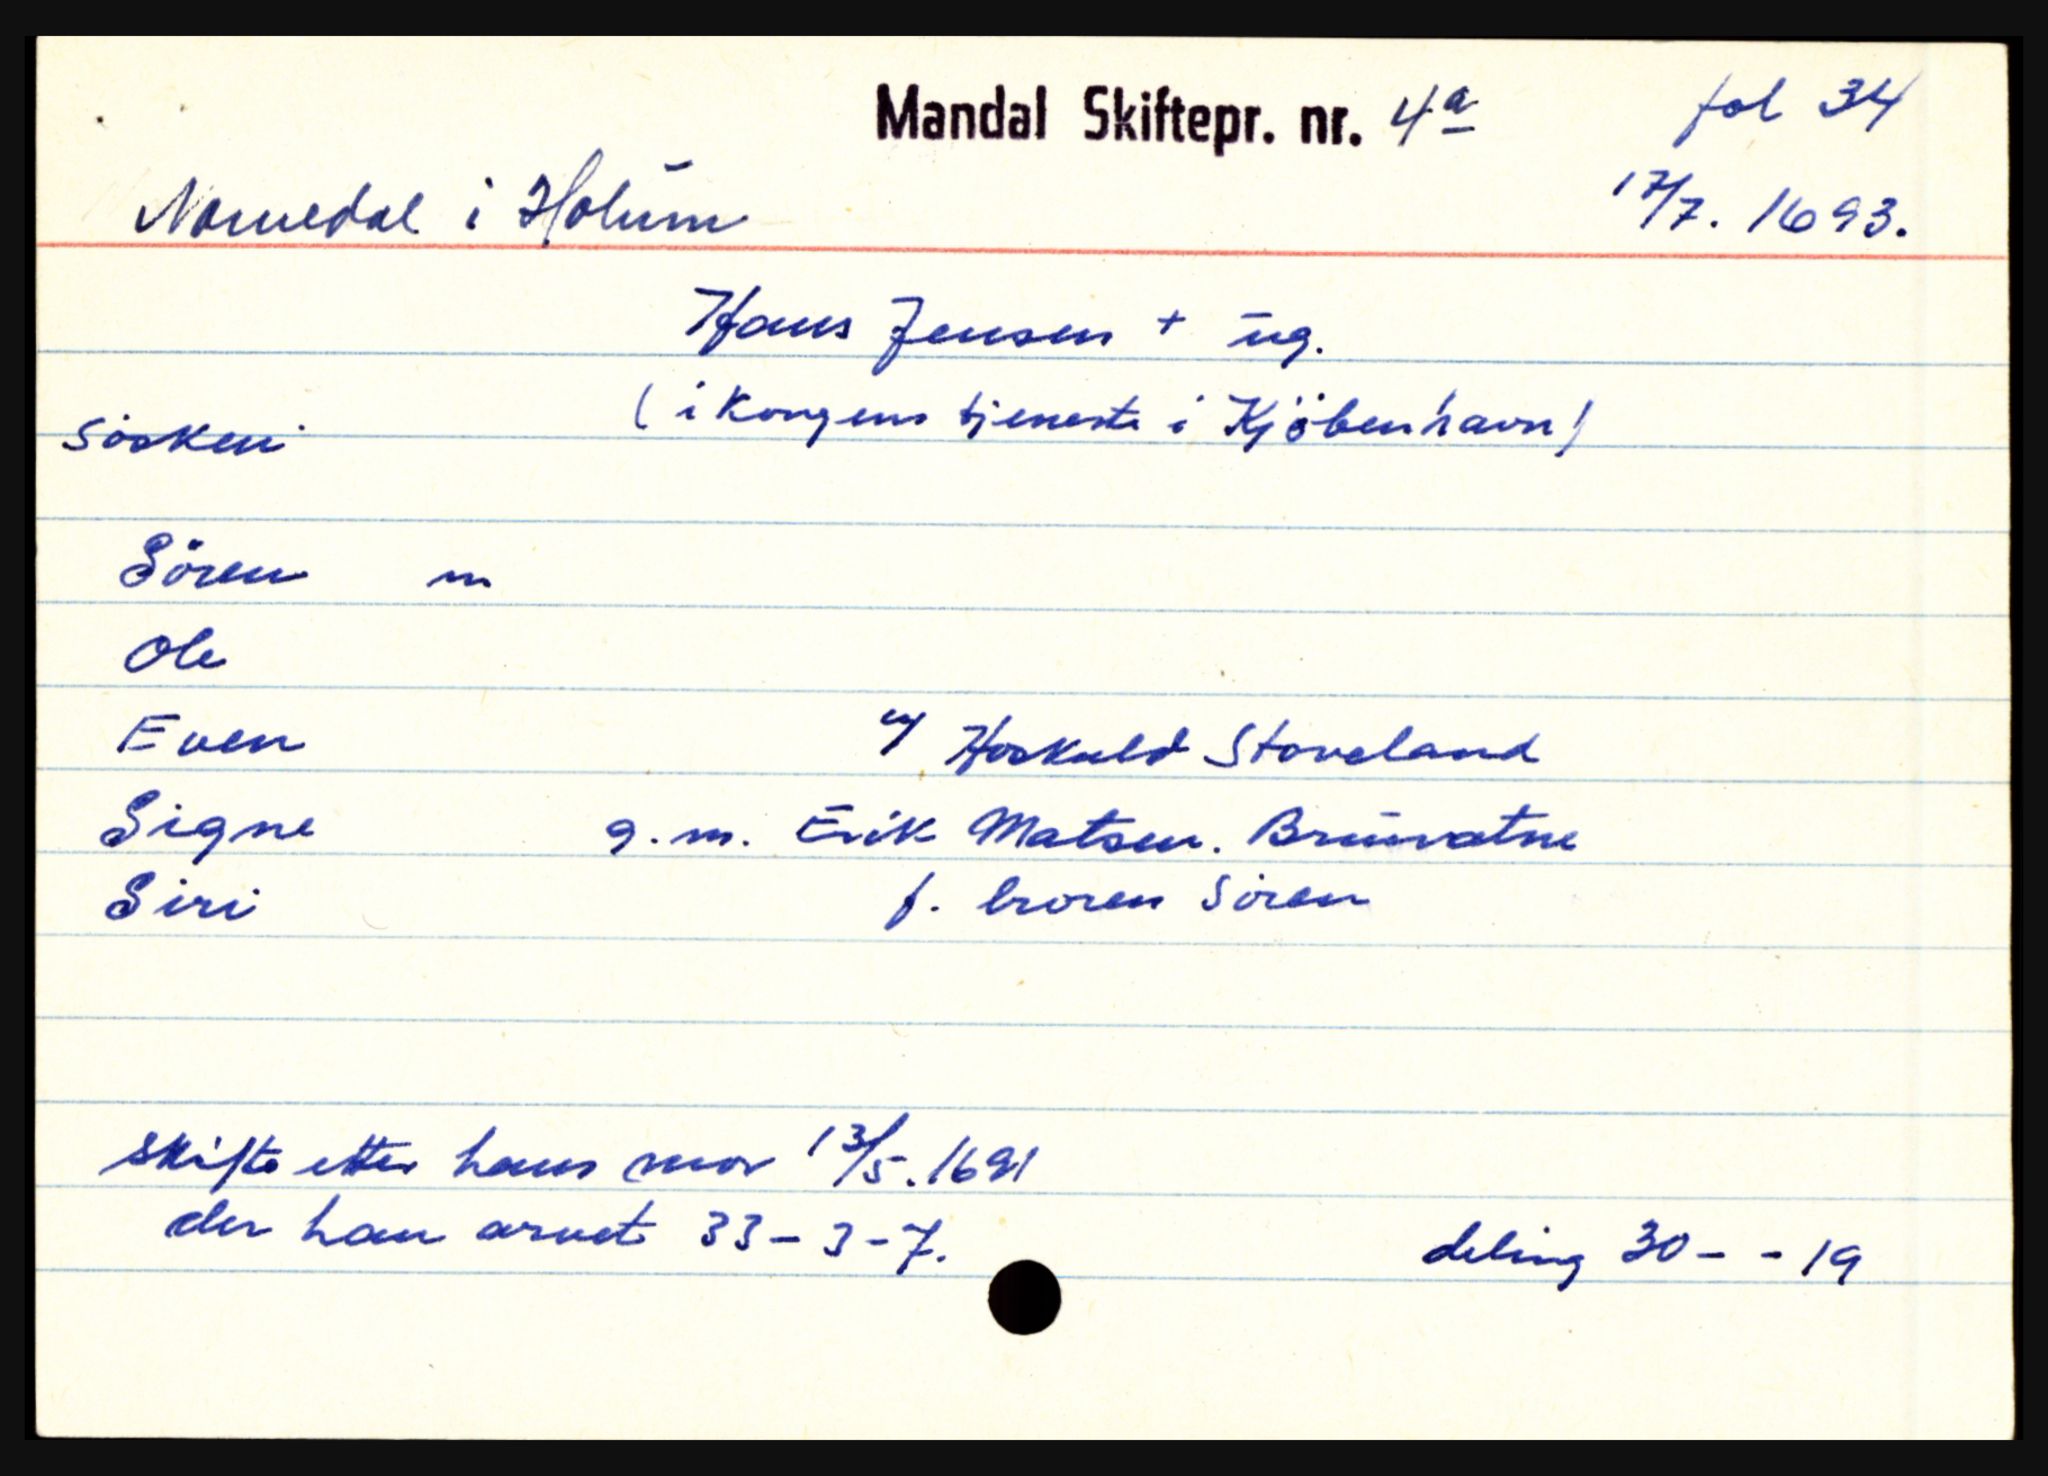 Mandal Skiftepr. nr. 4a fol 34
i Holum 17/7. 1693.
Hans Jensen + ug.
(i Kongens tjeneste i Kjöbenhavn)
Sösken
Sören m
Ole
Even Hoskuld Stoveland
Signe g.m. Erik Matsen. Bruvatne
Siri f. broren Sören
Skifte etter hans mor 13/5. 1691
der han arvet 33 - 3 - 7. deling 30 - - 19